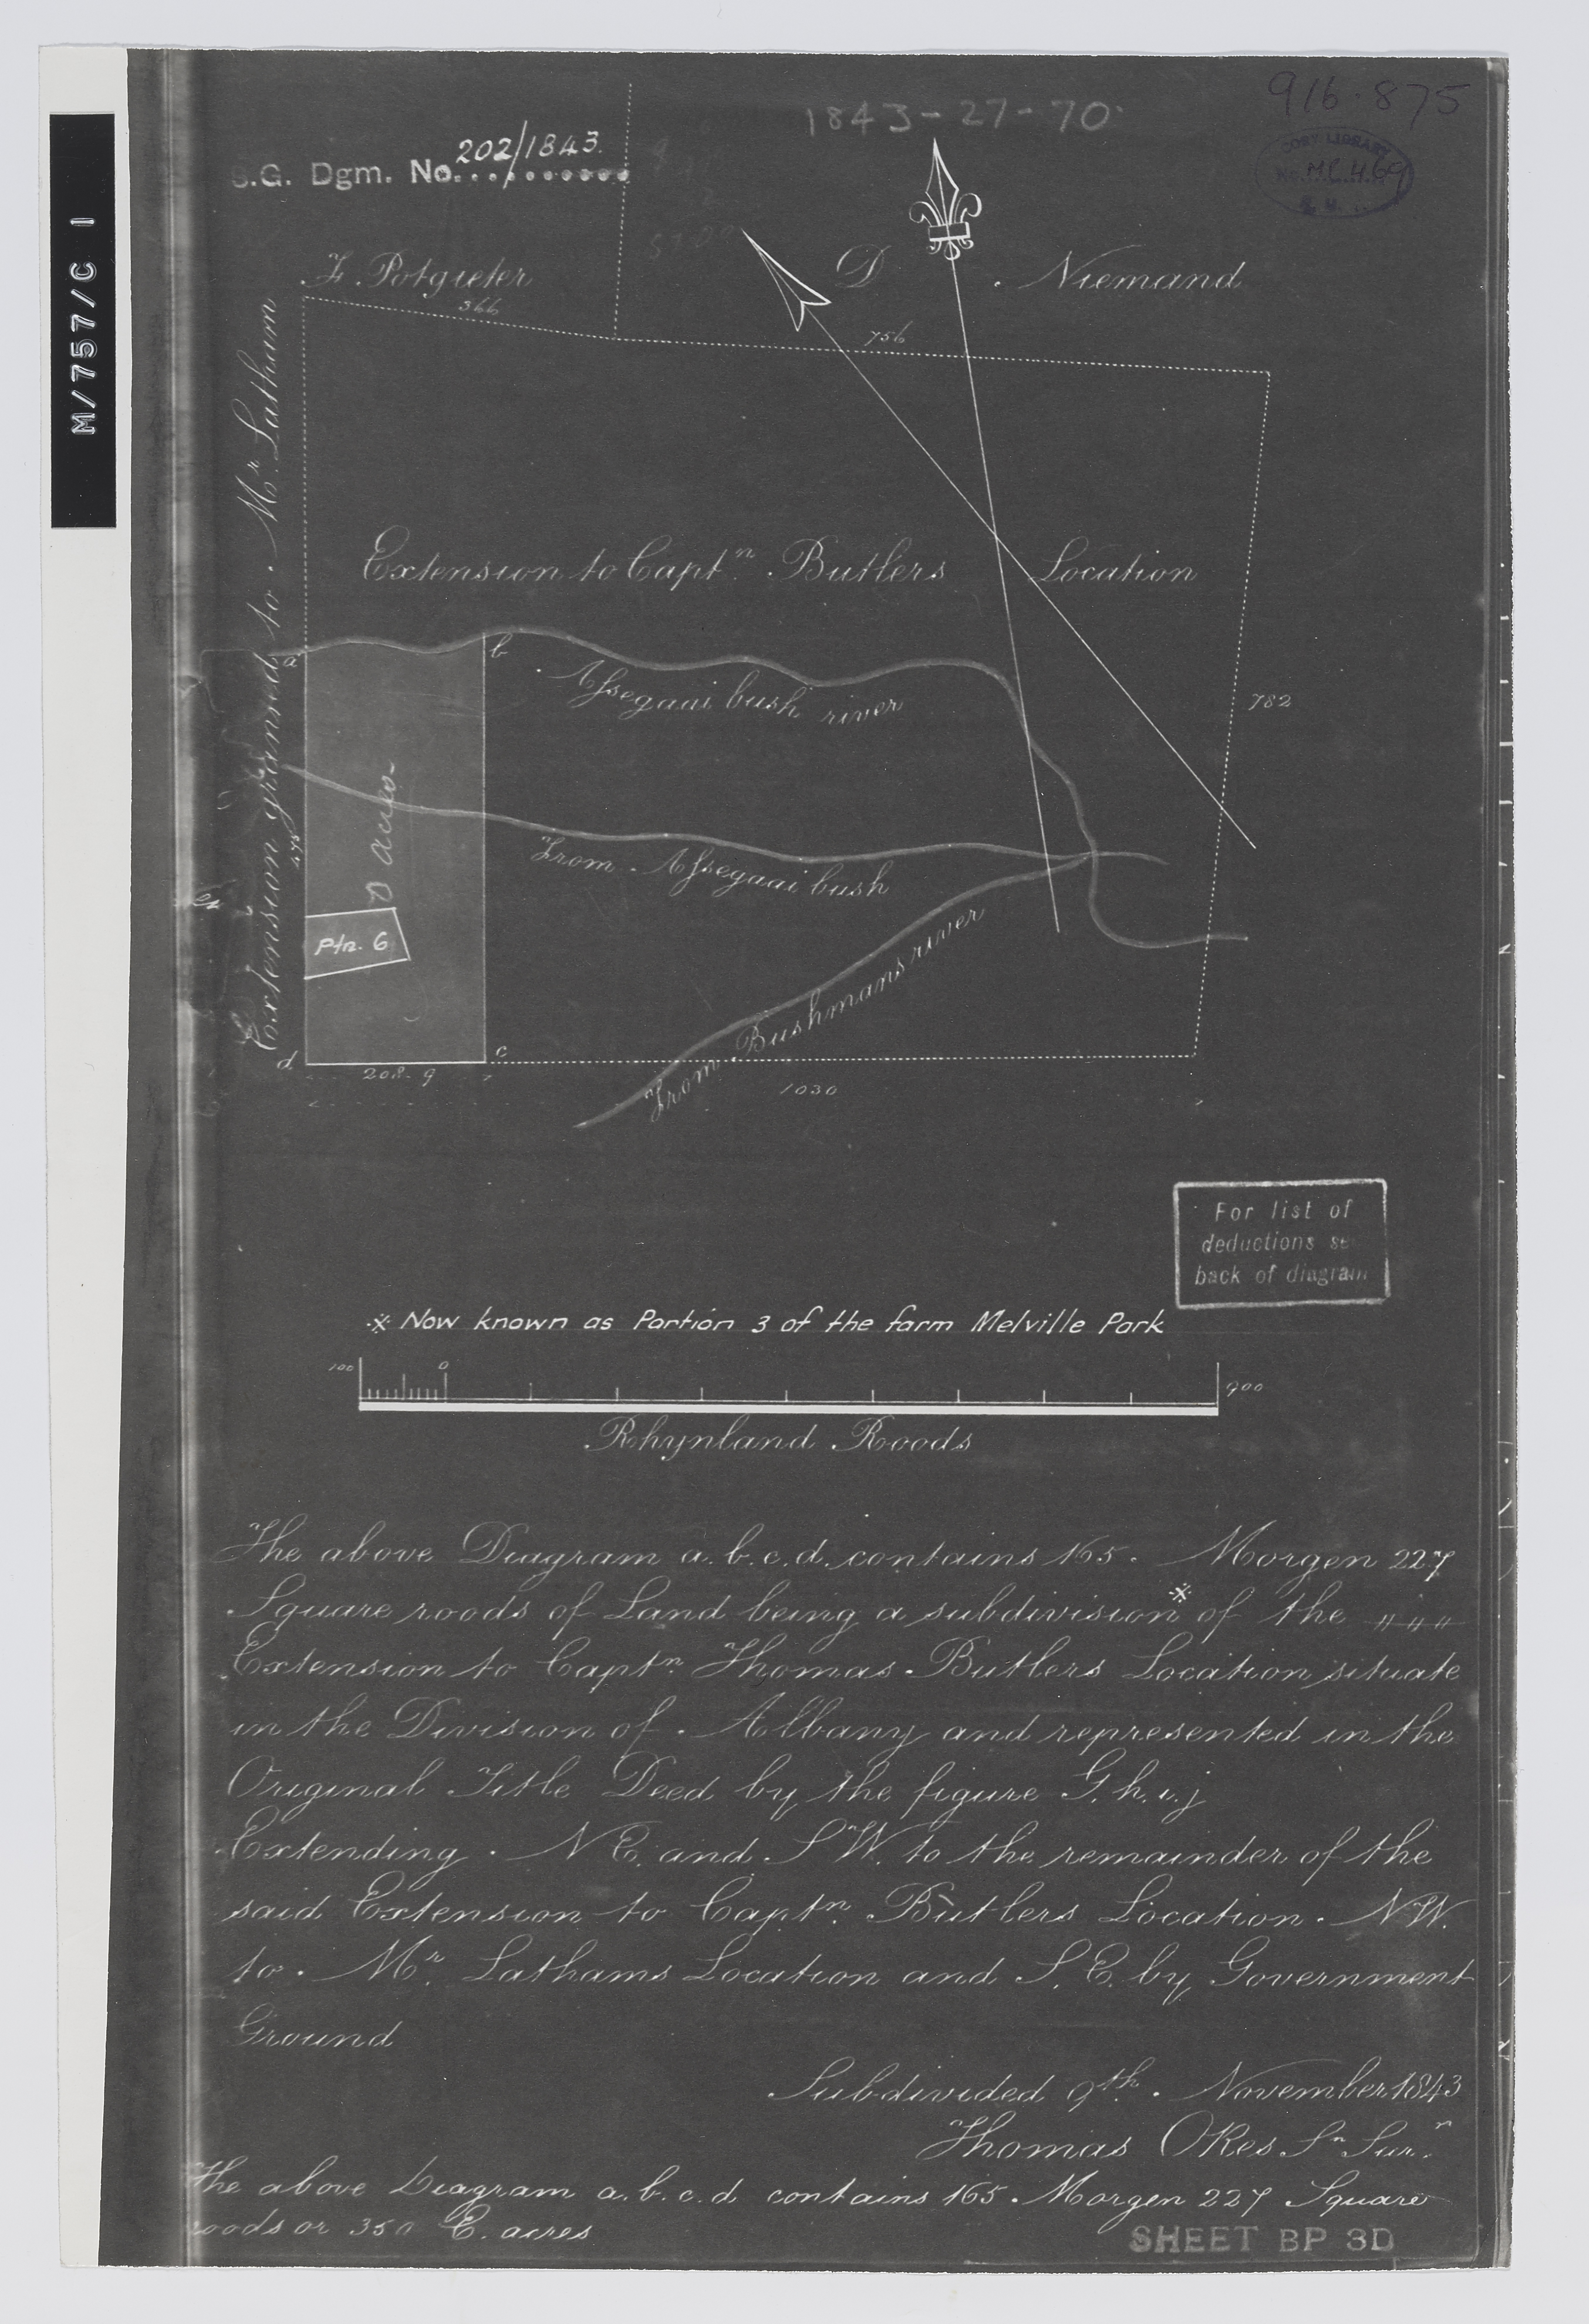 916.875
1843-27-70
S.G. Dgm. No. 202/1843.
CORY LIBRARY
No. MP.469
M/757/C 1
F. Potgieter
D. Niemand
366
756
Extension granted to Mr. Latham
Extension to Captn. Butlers Location
a
b
Assegaai bush river
782
475
acres
From Assegaai bush
Ptn. 6
From Bushmans river
d
c
208.9
1030
For list of
deductions se
back of diagram
※ Now known as Portion 3 of the farm Melville Park
100
0
900
Rhynland Roods
The above Diagram a.b.c.d. contains 165. Morgen 227
Square roods of Land being a subdivision※ of the
Extension to Captn. Thomas Butlers Location situate
in the Division of Albany and represented in the
Original Title Deed by the figure G.h.i.j
Extending. N E. and S W. to the remainder of the
said Extension to Captn. Butlers Location. N.W.
to. Mr. Lathams Location and S.E. by Government
Ground
Subdivided 9th. November 1843
Thomas Okes Sn Surr.
The above Diagram a.b.c.d contains 165. Morgen 227 Square
roods or 350 E. acres
SHEET BP 3D